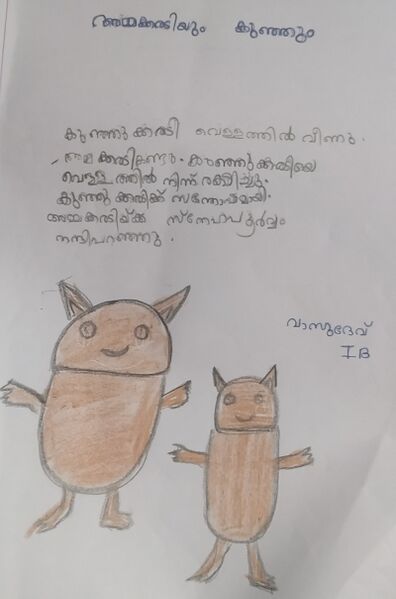 അമ്മക്കരടിയും കുഞ്ഞും
കുഞ്ഞു കരടി വെള്ളത്തിൽ വീണു.
അമ്മ കരടികണ്ടു. കുഞ്ഞുക്കരടിയെ
വെള്ളത്തിൽ നിന്ന് രക്ഷിച്ചു.
കുഞ്ഞു കരടിക്ക് സന്തോഷമായി.
അമ്മകരടിയ്ക്ക് സ്നേഹപൂർവ്വം
നന്ദിപറഞ്ഞു.
വാസുദേവ്
I B